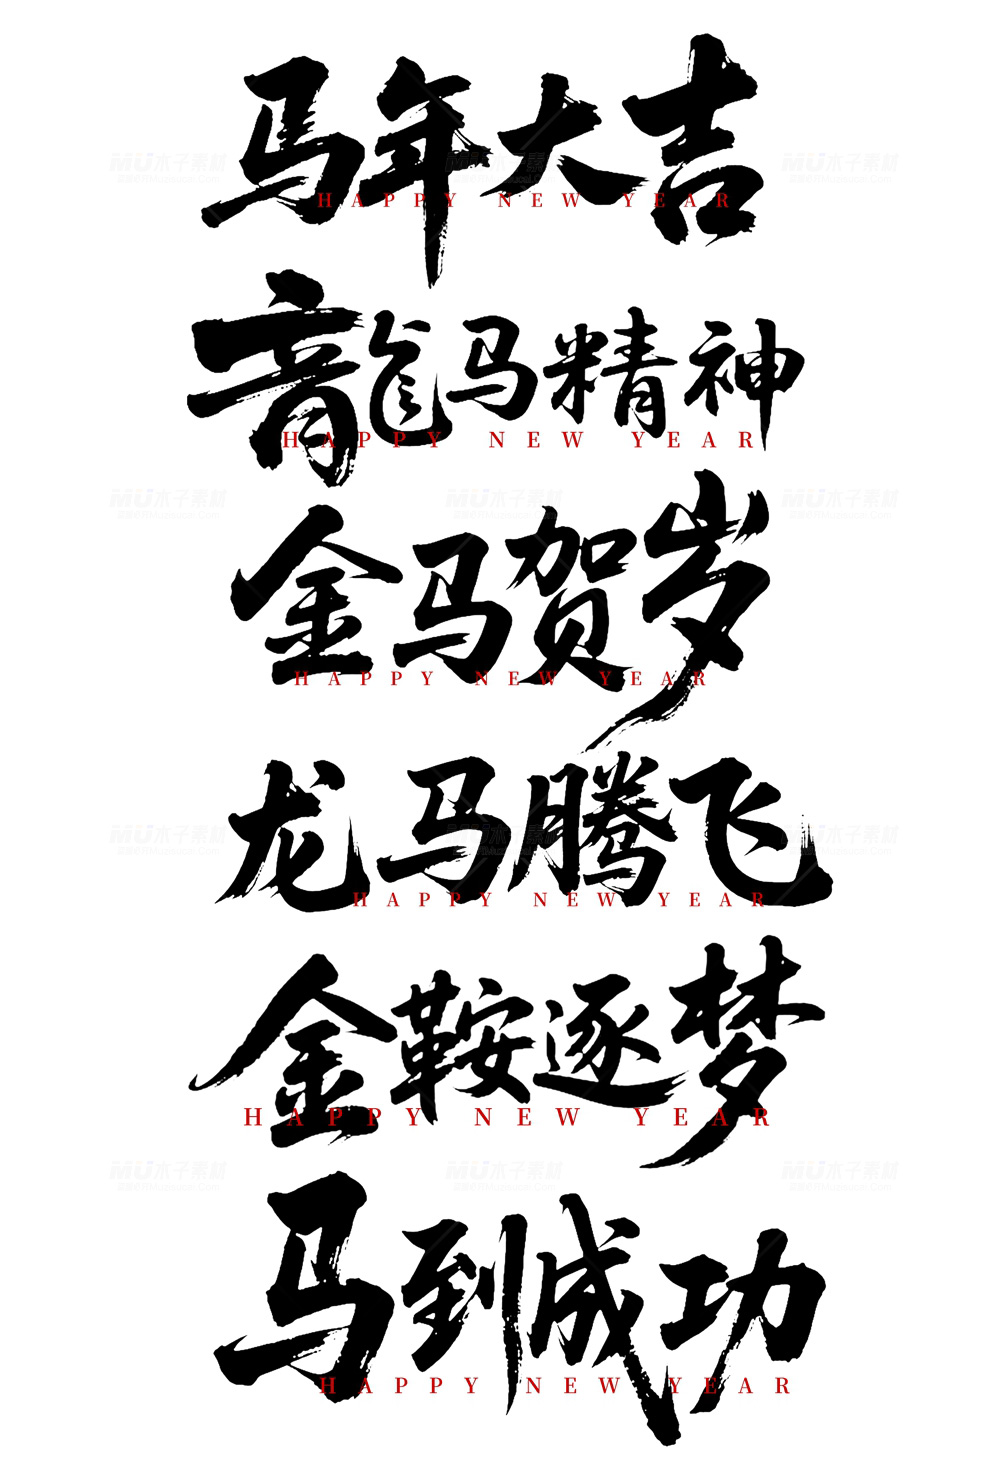 马年大吉
HAPPY NEW YEAR
龍马精神
HAPPY NEW YEAR
金马贺岁
HAPPY NEW YEAR
龙马腾飞
HAPPY NEW YEAR
金鞍逐梦
HAPPY NEW YEAR
马到成功
HAPPY NEW YEAR